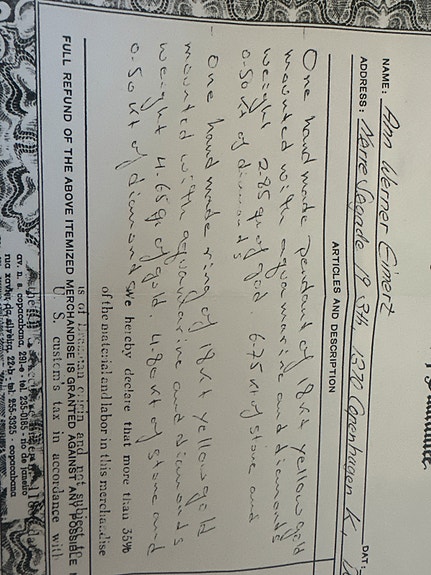 NAME: Ann Werner Eimert
ADDRESS: 19 3th, 1370 Copenhagen K,
DAT:
ARTICLES AND DESCRIPTION
- One handmade pendant of 18kt yellow gold
mounted with aquamarine and diamonds
weight 2.85gr of gold 6.75kt of stone and
0.50kt of diamonds
- One handmade ring of 18kt yellow gold
mounted with aquamarine and diamonds
weight 4.65gr of gold. 4.80kt of stone and
0.50kt of diamonds
We hereby declare that more than 35%
of the material and labor in this merchandise
is of and not subject
U. S. custom's tax in accordance with
FULL REFUND OF THE ABOVE ITEMIZED MERCHANDISE IS GRANTED AGAINST ANY POSSIBLE
av. n. s. copacabana, 291-e - tel. 235-0185 - rio de janeiro
rua xavier da silveira, 22-b - tel. 255-3325 copacabana